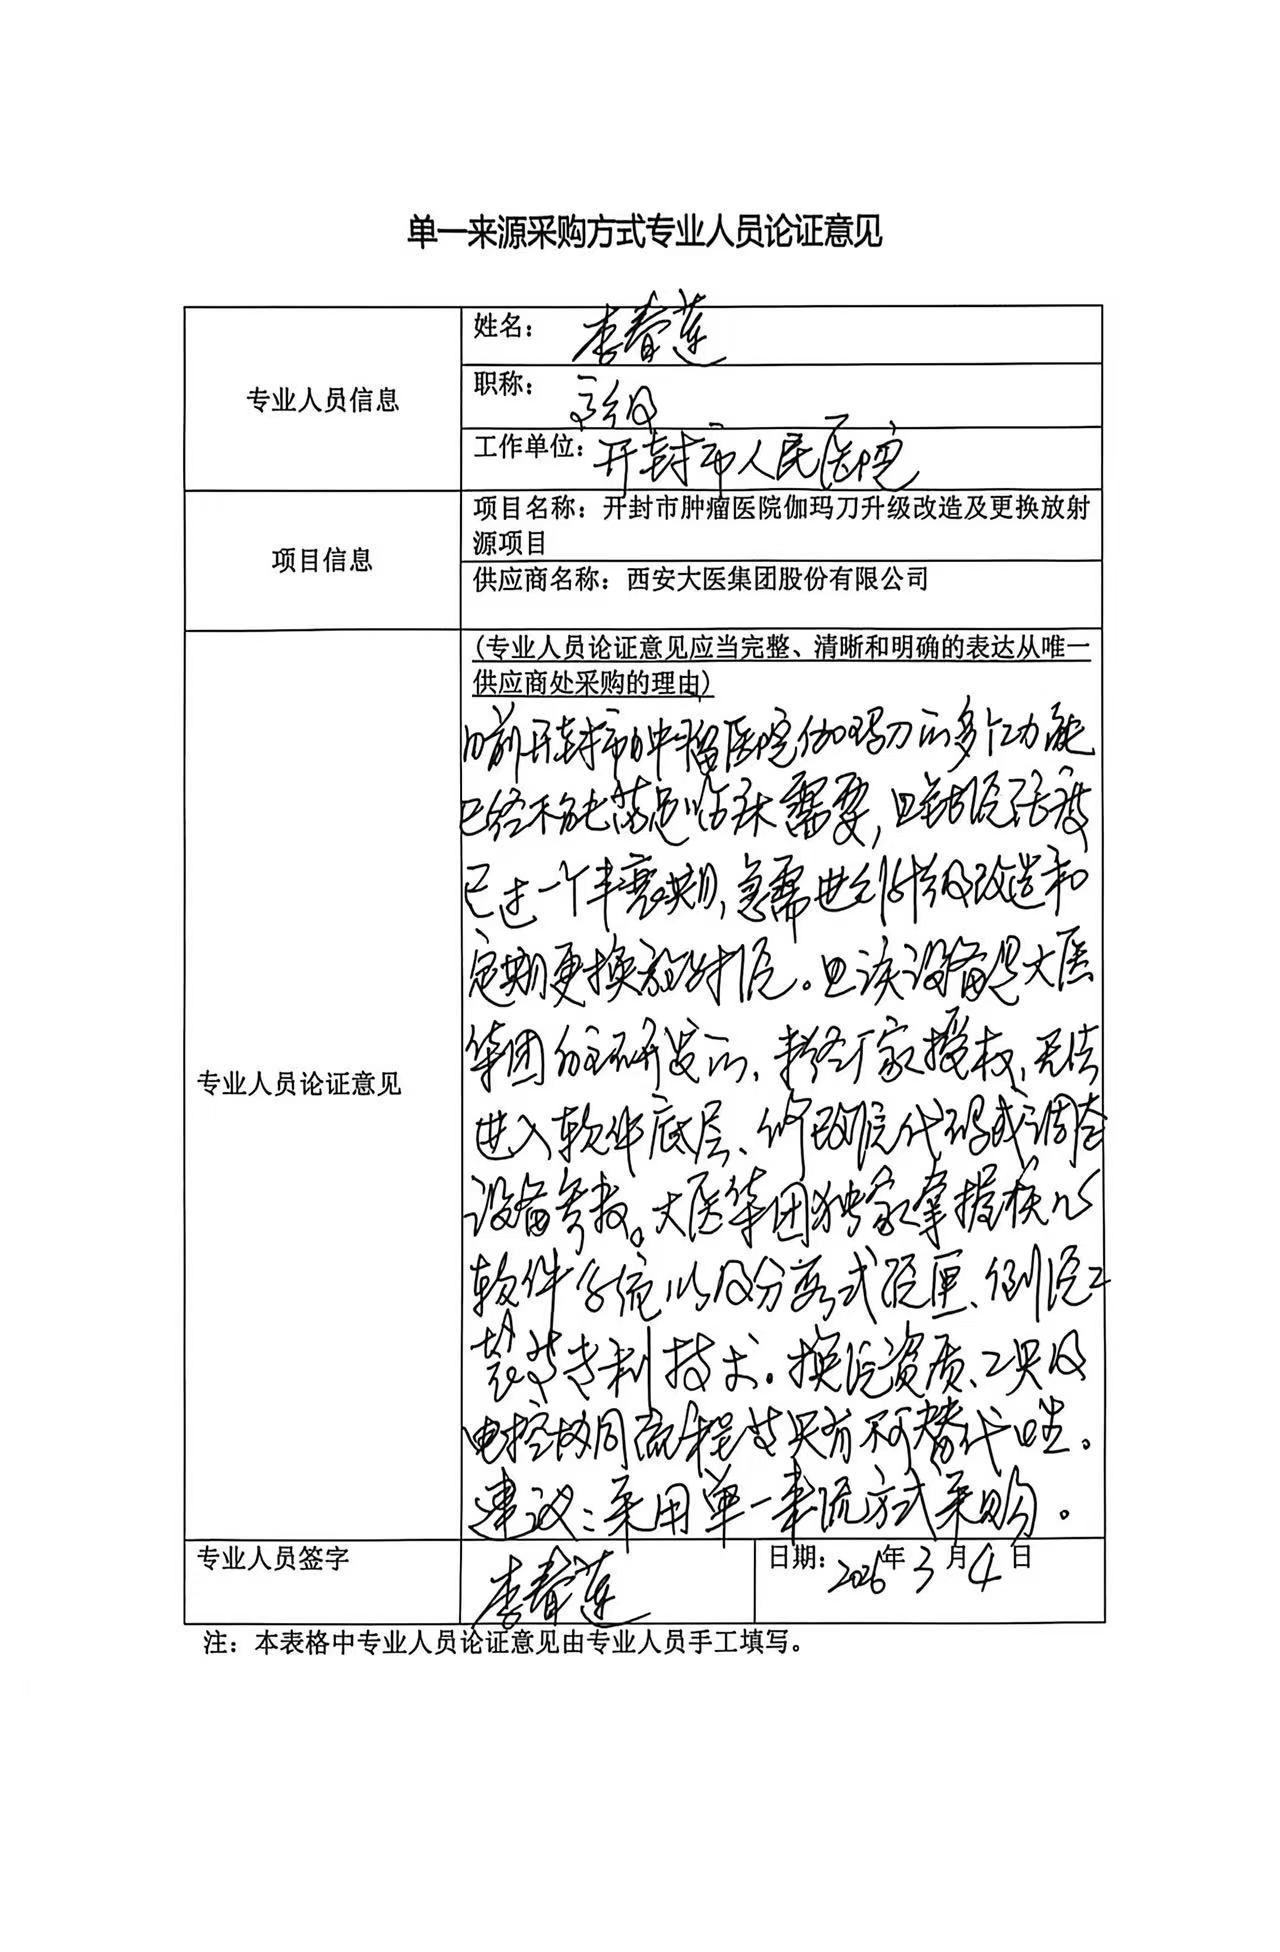 单一来源采购方式专业人员论证意见
专业人员信息
姓名：李春莲
职称：高级
工作单位：开封市人民医院
项目信息
项目名称：开封市肿瘤医院伽玛刀升级改造及更换放射
源项目
供应商名称：西安大医集团股份有限公司
专业人员论证意见
(专业人员论证意见应当完整、清晰和明确的表达从唯一
供应商处采购的理由)
目前开封市肿瘤医院伽玛刀的多个功能
已经不能满足临床需要，且钴源活度
已过一个半衰期，急需进行升级改造和
定期更换放射源。且该设备是大医
集团自主研发的，未经厂家授权，无法
进入软件底层、修改源代码或调整
设备参数。大医集团独家掌握核心
软件系统以及分离式源匣、倒源工
装等专利技术。换源资质、工具及
电控协同流程等具有不可替代性。
建议：采用单一来源方式采购。
专业人员签字
李春莲
日期：2026年3月4日
注：本表格中专业人员论证意见由专业人员手工填写。